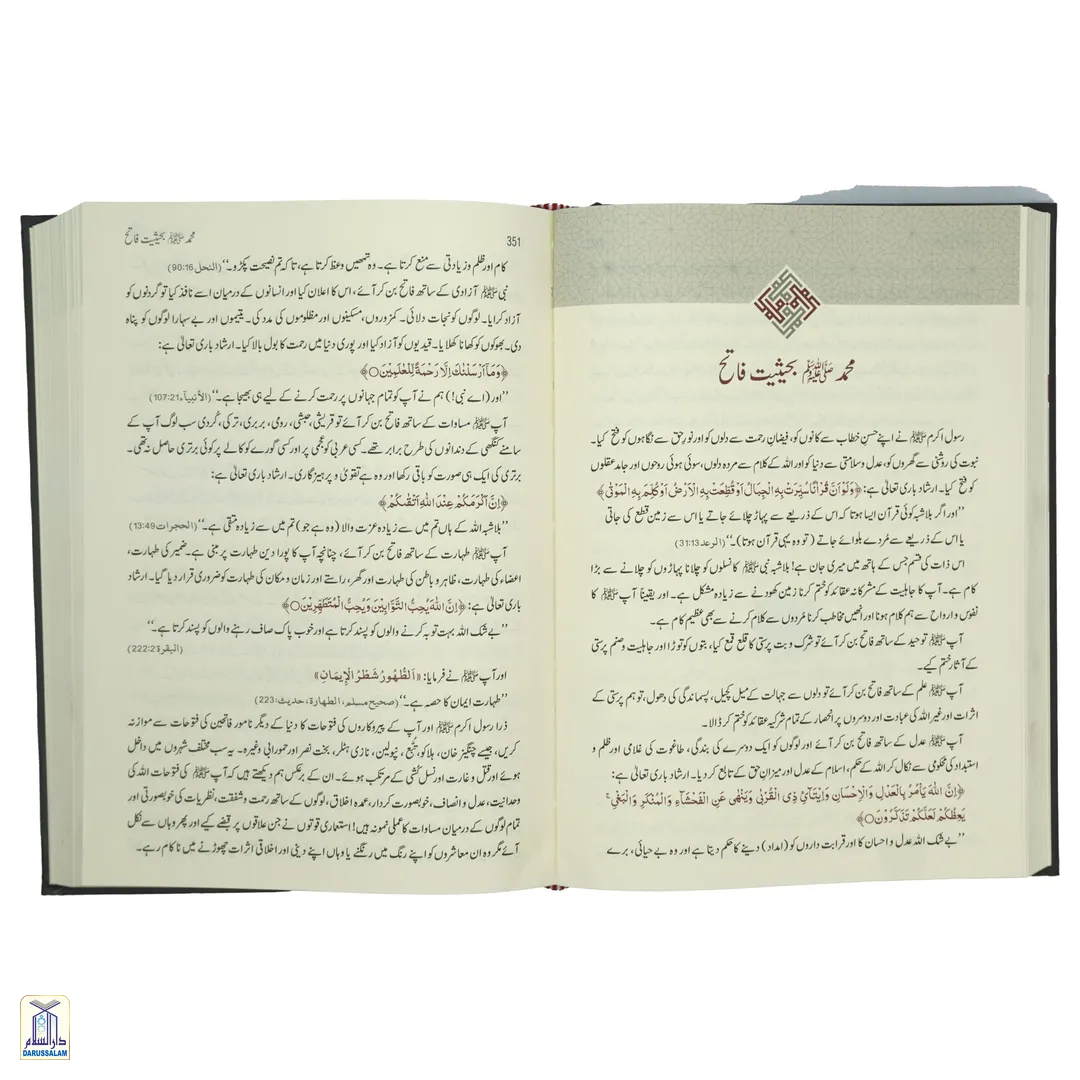 محمد ﷺ بحیثیت فاتح
رسول اکرم ﷺ نے اپنے حسنِ خطاب سے کانوں کو، فیضانِ رحمت سے دلوں کو اور نورِ حق سے نگاہوں کو فتح کیا۔
نبوت کی روشنی سے گھروں کو، عدل و سلامتی سے دنیا کو اور اللہ کے کلام سے مردہ دلوں، سوئی ہوئی روحوں اور جامد عقلوں
کو فتح کیا۔ ارشاد باری تعالیٰ ہے: ﴿وَلَوْ اَنَّ قُرْاٰنًا سُيِّرَتْ بِهِ الْجِبَالُ اَوْ قُطِّعَتْ بِهِ الْاَرْضُ اَوْ كُلِّمَ بِهِ الْمَوْتٰى﴾
’’اور اگر بلاشبہ کوئی قرآن ایسا ہوتا کہ اس کے ذریعے سے پہاڑ چلائے جاتے یا اس سے زمین قطع کی جاتی
یا اس کے ذریعے سے مُردے بلوائے جاتے (تو وہ یہی قرآن ہوتا)۔‘‘ (الرعد 31:13)
اس ذات کی قسم جس کے ہاتھ میں میری جان ہے! بلاشبہ نبی ﷺ کا نسلوں کو چلانا پہاڑوں کو چلانے سے بڑا
کام ہے۔ آپ کا جاہلیت کے مشرکانہ عقائد کو ختم کرنا زمین کھودنے سے زیادہ مشکل ہے۔ اور یقیناً آپ ﷺ کا
نفوس و ارواح سے ہم کلام ہونا اور انھیں مخاطب کرنا مُردوں سے کلام کرنے سے بھی عظیم کام ہے۔
آپ ﷺ توحید کے ساتھ فاتح بن کر آئے تو شرک و بت پرستی کا قلع قمع کیا، بتوں کو توڑا اور جاہلیت و صنم پرستی
کے آثار ختم کیے۔
آپ ﷺ علم کے ساتھ فاتح بن کر آئے تو دلوں سے جہالت کے میل کچیل، پسماندگی کی دھول، توہم پرستی کے
اثرات اور غیر اللہ کی عبادت اور دوسروں پر انحصار کے تمام شرکیہ عقائد کو ختم کر ڈالا۔
آپ ﷺ عدل کے ساتھ فاتح بن کر آئے اور لوگوں کو ایک دوسرے کی بندگی، طاغوت کی غلامی اور ظلم و
استبداد کی محکومی سے نکال کر اللہ کے حکم، اسلام کے عدل اور میزانِ حق کے تابع کر دیا۔ ارشاد باری تعالیٰ ہے:
﴿اِنَّ اللّٰهَ يَاْمُرُ بِالْعَدْلِ وَالْاِحْسَانِ وَاِيْتَآئِ ذِي الْقُرْبٰى وَيَنْهٰى عَنِ الْفَحْشَآءِ وَالْمُنْكَرِ وَالْبَغْيِ ۚ
يَعِظُكُمْ لَعَلَّكُمْ تَذَكَّرُوْنَ○﴾
’’بے شک اللہ عدل و احسان کا اور قرابت داروں کو (امداد) دینے کا حکم دیتا ہے اور وہ بے حیائی، برے
محمد ﷺ بحیثیت فاتح 351
کام اور ظلم و زیادتی سے منع کرتا ہے۔ وہ تمھیں وعظ کرتا ہے، تاکہ تم نصیحت پکڑو۔‘‘ (النحل 90:16)
نبی ﷺ آزادی کے ساتھ فاتح بن کر آئے، اس کا اعلان کیا اور انسانوں کے درمیان اسے نافذ کیا تو گردنوں کو
آزاد کرایا۔ لوگوں کو نجات دلائی۔ کمزوروں، مسکینوں اور مظلوموں کی مدد کی۔ یتیموں اور بے سہارا لوگوں کو پناہ
دی۔ بھوکوں کو کھانا کھلایا۔ قیدیوں کو آزاد کیا اور پوری دنیا میں رحمت کا بول بالا کیا۔ ارشاد باری تعالیٰ ہے:
﴿وَمَآ اَرْسَلْنٰكَ اِلَّا رَحْمَةً لِّلْعٰلَمِيْنَ○﴾
’’اور (اے نبی!) ہم نے آپ کو تمام جہانوں پر رحمت کرنے کے لیے ہی بھیجا ہے۔‘‘ (الأنبيآء 107:21)
آپ ﷺ مساوات کے ساتھ فاتح بن کر آئے تو قریشی، حبشی، رومی، بربری، ترکی، کُردی سب لوگ آپ کے
سامنے کنگھی کے دندانوں کی طرح برابر تھے۔ کسی عربی کو عجمی پر اور کسی گورے کو کالے پر کوئی برتری حاصل نہ تھی۔
برتری کی ایک ہی صورت کو باقی رکھا اور وہ ہے تقویٰ و پرہیزگاری۔ ارشاد باری تعالیٰ ہے:
﴿اِنَّ اَكْرَمَكُمْ عِنْدَ اللّٰهِ اَتْقٰىكُمْ﴾
’’بلاشبہ اللہ کے ہاں تم میں سے زیادہ عزت والا (وہ ہے جو) تم میں سے زیادہ متقی ہے۔‘‘ (الحجرات 13:49)
آپ ﷺ طہارت کے ساتھ فاتح بن کر آئے، چنانچہ آپ کا پورا دین طہارت پر مبنی ہے۔ ضمیر کی طہارت،
اعضاء کی طہارت، ظاہر و باطن کی طہارت اور گھر، راستے اور زمان و مکان کی طہارت کو ضروری قرار دیا گیا۔ ارشاد
باری تعالیٰ ہے: ﴿اِنَّ اللّٰهَ يُحِبُّ التَّوَّابِيْنَ وَيُحِبُّ الْمُتَطَهِّرِيْنَ○﴾
’’بے شک اللہ بہت توبہ کرنے والوں کو پسند کرتا ہے اور خوب پاک صاف رہنے والوں کو پسند کرتا ہے۔‘‘
(البقرة 222:2)
اور آپ ﷺ نے فرمایا: «اَلطُّهُورُ شَطْرُ الْإِيمَانِ»
’’طہارت ایمان کا حصہ ہے۔‘‘ (صحيح مسلم، الطهارة، حديث: 223)
ذرا رسول اکرم ﷺ اور آپ کے پیروکاروں کی فتوحات کا دنیا کے دیگر نامور فاتحین کی فتوحات سے موازنہ
کریں، جیسے چنگیز خان، ہلاکو، تُبَّع، نپولین، نازی ہٹلر، بخت نصر اور حمورابی وغیرہ۔ یہ سب مختلف شہروں میں داخل
ہوئے اور قتل و غارت اور نسل کُشی کے مرتکب ہوئے۔ ان کے برعکس ہم دیکھتے ہیں کہ آپ ﷺ کی فتوحات اللہ کی
وحدانیت، عدل و انصاف، خوبصورت کردار، عمدہ اخلاق، لوگوں کے ساتھ رحمت و شفقت، نظریات کی خوبصورتی اور
تمام لوگوں کے درمیان مساوات کا عملی نمونہ ہیں! استعماری قوتوں نے جن علاقوں پر قبضے کیے اور پھر وہاں سے نکل
آئے مگر وہ ان معاشروں کو اپنے رنگ میں رنگنے یا وہاں اپنے دینی اور اخلاقی اثرات چھوڑنے میں ناکام رہے۔
دارالسلام
DARUSSALAM